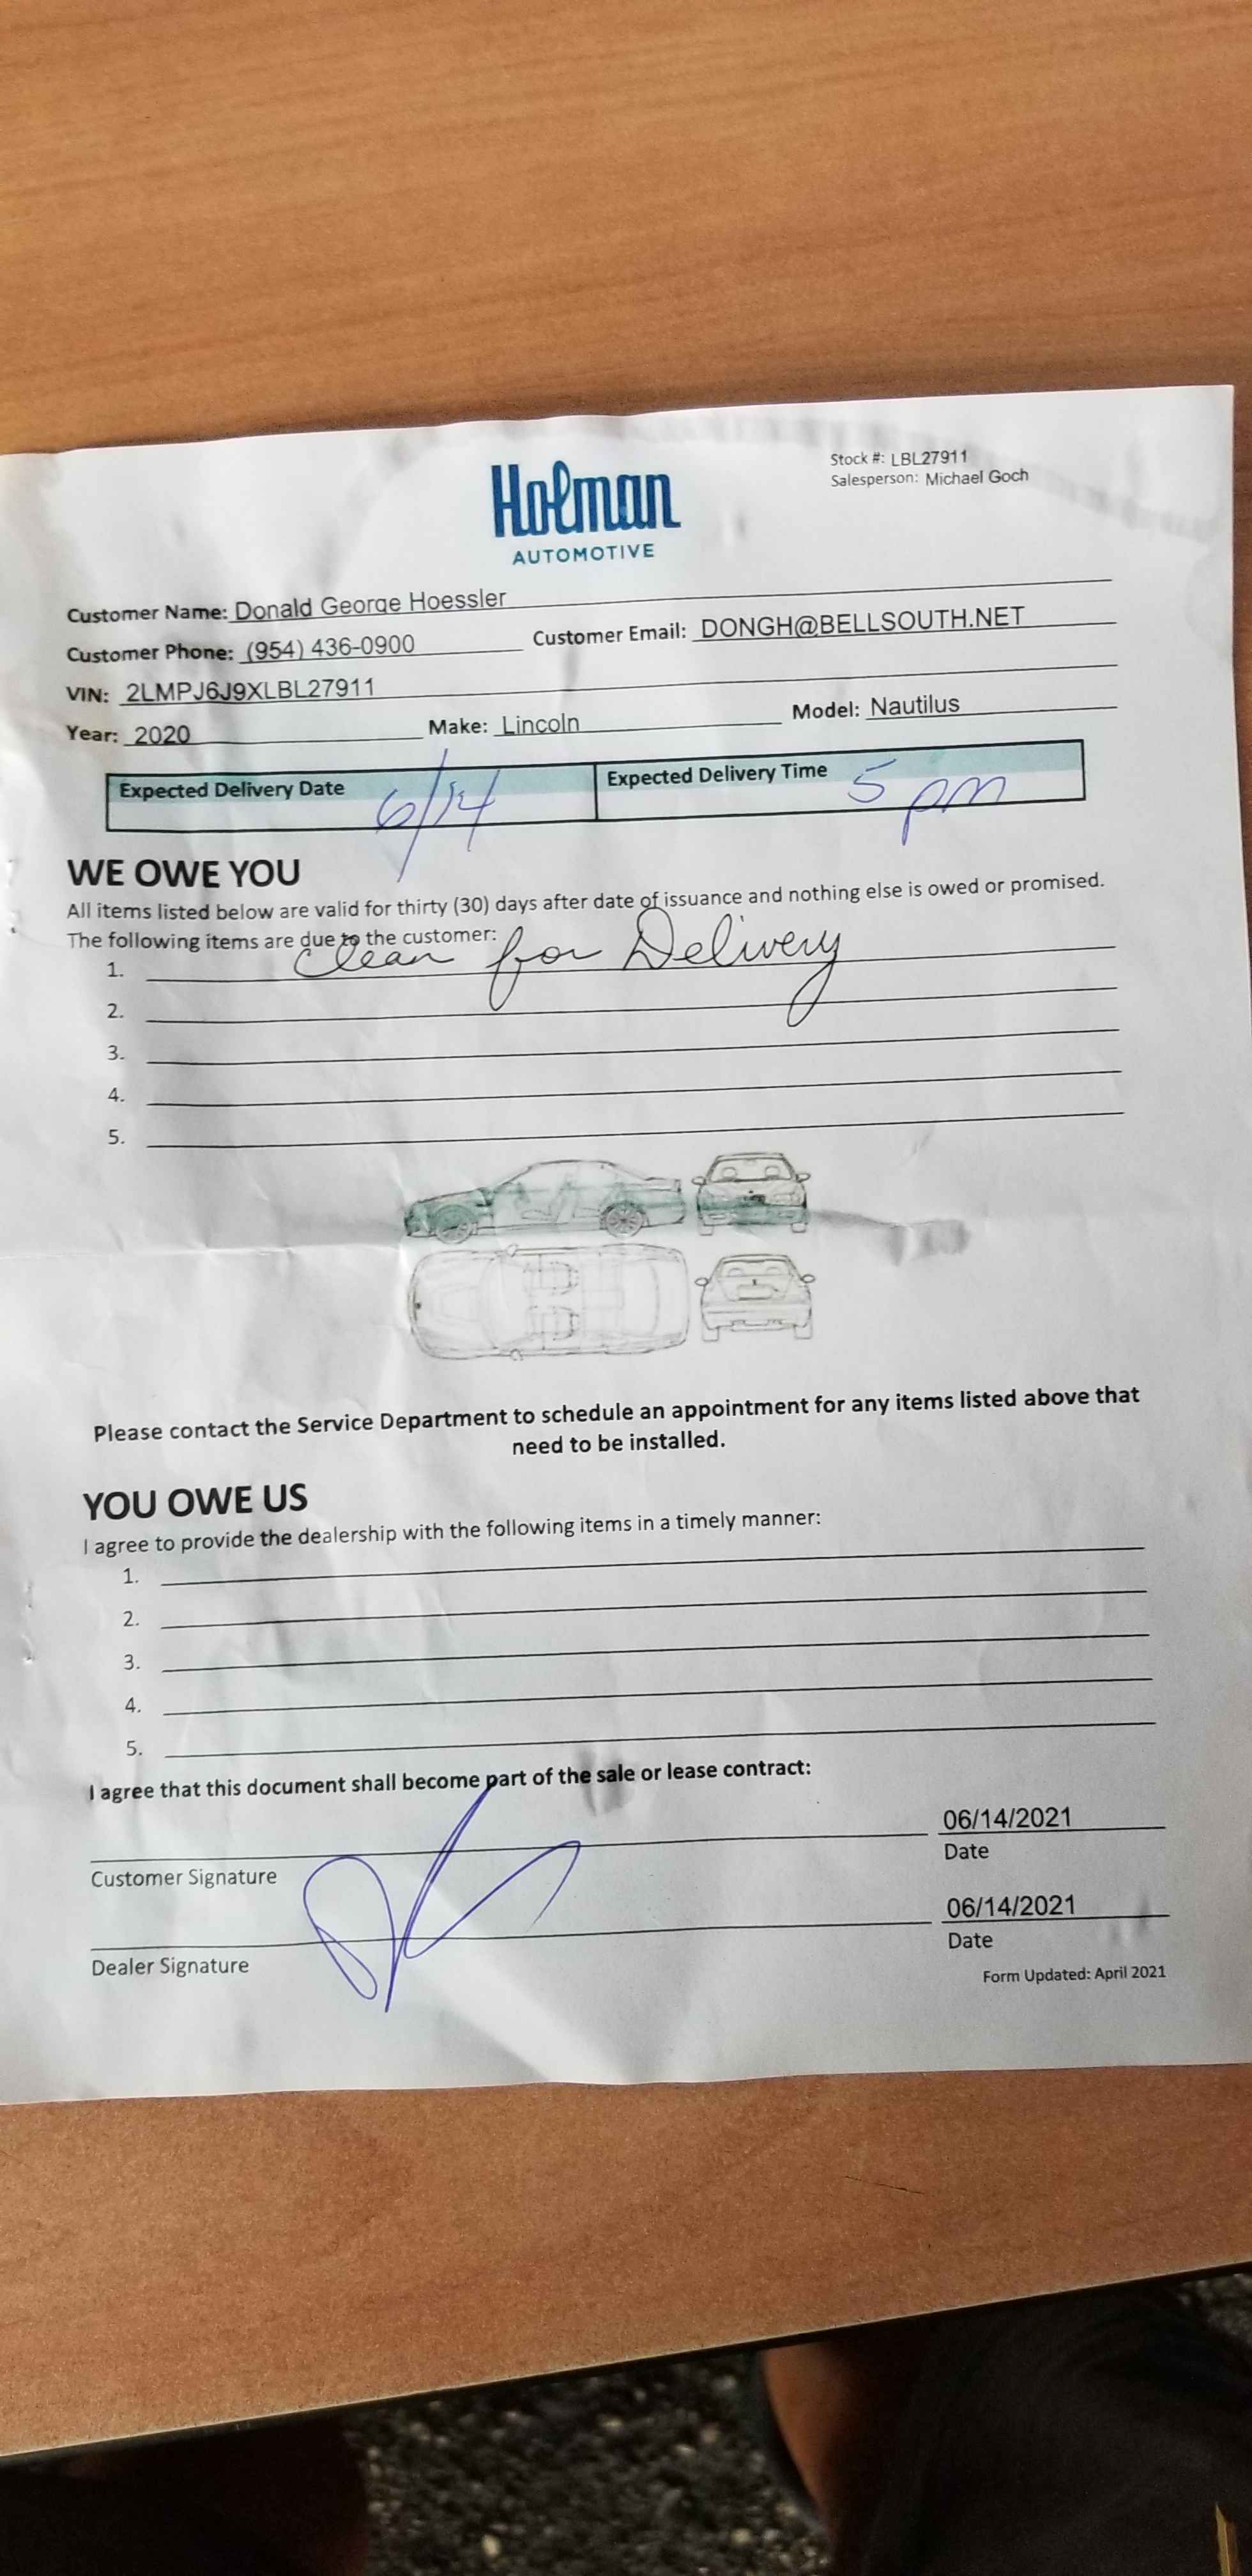 Holman
AUTOMOTIVE
Stock #: LBL27911
Salesperson: Michael Goch
Customer Name: Donald George Hoessler
Customer Phone: (954) 436-0900 Customer Email: DONGH@BELLSOUTH.NET
VIN: 2LMPJ6J9XLBL27911
Year: 2020 Make: Lincoln Model: Nautilus
Expected Delivery Date 6/14 Expected Delivery Time 5 pm
WE OWE YOU
All items listed below are valid for thirty (30) days after date of issuance and nothing else is owed or promised.
The following items are due to the customer:
1. Clean for Delivery
2.
3.
4.
5.
Please contact the Service Department to schedule an appointment for any items listed above that
need to be installed.
YOU OWE US
I agree to provide the dealership with the following items in a timely manner:
1.
2.
3.
4.
5.
I agree that this document shall become part of the sale or lease contract:
06/14/2021
Customer Signature Date
06/14/2021
Dealer Signature Date
Form Updated: April 2021